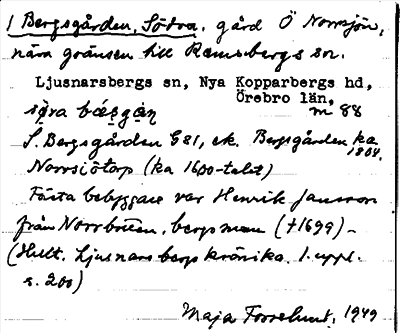 1 Bergsgården, Södra, gård Ö Norrsjön,
nära gränsen till Ramsbergs sn.
Ljusnarsbergs sn, Nya Kopparbergs hd,
Örebro län,
m 88
S. Bergsgården G 81, ek. Bergsgården ka
1864.
Norrsiötorp (ka 1600-talet)
Första bebyggare var Henrik Jansson
från Norrbotten, bergsman (†1699) –
(Hult. Ljusnarsbergs krönika. 1. uppl.
s. 200)
Maja Forselund, 1949